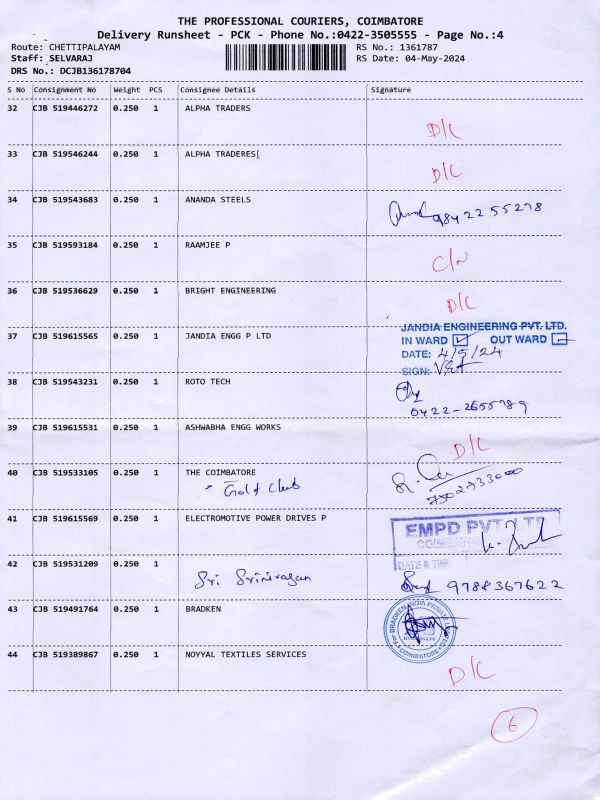 THE PROFESSIONAL COURIERS, COIMBATORE
Delivery Runsheet - PCK - Phone No.:0422-3505555 - Page No.:4
Route: CHETTIPALAYAM RS No.: 1361787
Staff: SELVARAJ RS Date: 04-May-2024
DRS No.: DCJB136178704
S No Consignment No Weight PCS Consignee Details Signature
32 CJB 519446272 0.250 1 ALPHA TRADERS
D/C
33 CJB 519546244 0.250 1 ALPHA TRADERES[
D/C
34 CJB 519543683 0.250 1 ANANDA STEELS
9842255278
35 CJB 519593184 0.250 1 RAAMJEE P
C/N
36 CJB 519536629 0.250 1 BRIGHT ENGINEERING
D/C
JANDIA ENGINEERING PVT. LTD.
37 CJB 519615565 0.250 1 JANDIA ENGG P LTD
IN WARD OUT WARD
DATE: 4/5/24
SIGN:
38 CJB 519543231 0.250 1 ROTO TECH
0422-2655989
39 CJB 519615531 0.250 1 ASHWABHA ENGG WORKS
D/C
40 CJB 519533105 0.250 1 THE COIMBATORE
Golf Club
7502933000
41 CJB 519615569 0.250 1 ELECTROMOTIVE POWER DRIVES P
EMPD PVT LTD
DATE & TIME
42 CJB 519531209 0.250 1
Sri Srinivasan 9788367622
43 CJB 519491764 0.250 1 BRADKEN
For BRADKEN INDIA PRIVATE LTD
BRADKEN
COIMBATORE
44 CJB 519389867 0.250 1 NOYYAL TEXTILES SERVICES
D/C
6